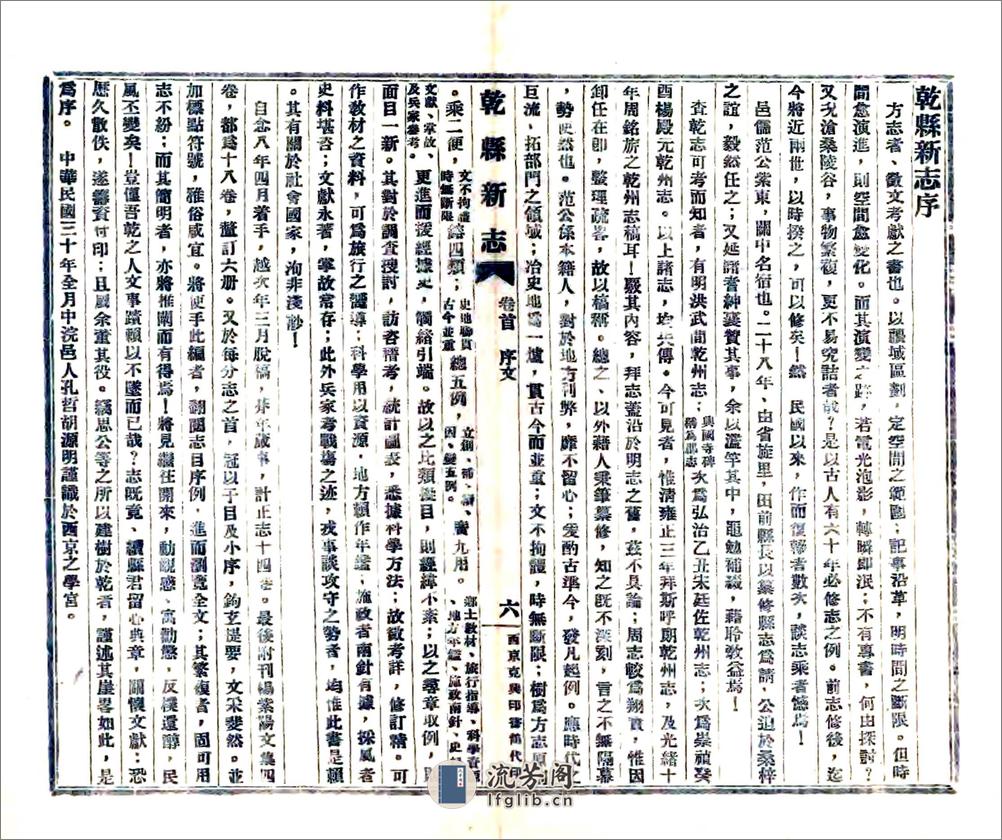 乾縣新志序
方志者、徵文考獻之書也。以疆域區劃，定空間之範圍；記事沿革，明時間之斷限。但時
間愈演進，則空間愈變化。而其演變之跡，若電光泡影，轉瞬即泯；不有專書，何由探討？
又况滄桑陵谷，事物繁複，更不易究詰者哉？是以古人有六十年必修志之例。前志修後，迄
今將近兩世，以時揆之，可以修矣！然　民國以來，作而復輟者數次，談志乘者憾焉！
邑儒范公紫東，關中名宿也。二十八年、由省旋里，田前縣長以纂修縣志爲請，公迫於桑梓
之誼，毅然任之；又延諸耆紳襄贊其事，余以濫竽其中，黽勉補綴，藉聆敎益焉！
查乾志可考而知者，有明洪武間乾州志；興國寺碑稱爲郡志次爲弘治乙丑宋廷佐乾州志；次爲崇禎癸
酉楊殿元乾州志。以上諸志，均失傳。今可見者，惟清雍正三年拜斯呼朗乾州志，及光緒十
年周銘旂之乾州志稿耳！覈其內容，拜志蓋沿於明志之舊，茲不具論；周志較爲翔實，惟因
卸任在卽，整理疏畧，故以稿稱。總之、以外藉人秉筆纂修，知之旣不深刻，言之不無隔幕
，勢使然也。范公係本籍人，對於地方利弊，靡不留心；爰酌古準今，發凡起例。應時代之
巨流，拓部門之領域；冶史地爲一爐，貫古今而並重；文不拘體，時無斷限；樹爲方志原
乾縣新志
卷首　序文
六
西京克興印書館代印
。乘二便，文不拘體時無斷限　畧四類；史地聯貫古今並重　總五例，立創、補、續、因、變五例。　賡九用。鄉土敎材、旅行指導、科學資、地方年鑑、施政南針、史、
文獻、掌故、及兵家參考。更進而援經據史，觸緒引端。故以之比類從目，則經緯不紊；以之尋章取例，
面目一新。其對於調查搜討，訪咨稽考，統計圖表，悉據科學方法；故徵考詳，修訂精。可
作敎材之資料，可爲旅行之嚮導；科學用以資源，地方賴作年鑑；施政者南針有據，採風者
史料堪咨；文獻永著，掌故常存；此外兵家考戰塲之迹，戎事談攻守之勢者，均惟此書是賴
。其有關於社會國家，洵非淺尠！
自念八年四月着手，越次年三月脫稿，朞年歲事，計正志十四卷。最後附刋楊紫陽文集四
卷，都爲十八卷，釐訂六册。又於每分志之首，冠以子目及小序，鈎玄提要，文采斐然。並
加標點符號，雅俗咸宜。將使手此編者，翻閱志目序例，進而瀏覽全文；其繁複者，固可用
志不紛；而其簡明者，亦將推闡而有得焉！將見繼往開來，動觀感，寓勸懲，反樸還醇，民
風丕變矣！豈僅吾乾之人文事蹟賴以不墜而已哉？志旣竟、續縣君留心典章，關懷文獻；恐
歷久散佚，遂籌資付印；且屬余董其役。竊思公等之所以建樹於乾者，謹述其崖畧如此，是
爲序。　中華民國三十年全月中浣邑人孔哲胡源明謹識於西京之學宮。
流芳閣
lfglib.cn